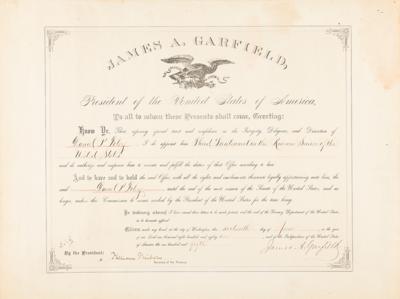 JAMES A. GARFIELD,
President of the United States of America,
To all to whom these Presents shall come, Greeting:
Know Ye, That reposing special trust and confidence in the Integrity, Diligence, and Discretion of
I do appoint him Third Lieutenant in the Revenue Service of the
United States
and do authorize and empower him to execute and fulfill the duties of that Office according to law:
And to have and to hold the said Office, with all the rights and emoluments thereunto legally appertaining unto him, the
said until the end of the next session of the Senate of the United States, and no
longer, unless this Commission be sooner revoked by the President of the United States for the time being.
In testimony whereof, I have caused these Letters to be made patent, and the seal of the Treasury Department of the United States
to be hereunto affixed.
Given under my hand, at the City of Washington, the day of June in the year
of our Lord one thousand eight hundred and eighty one and of the Independence of the United States
of America the one hundred and fifth
James A. Garfield
By the President:
William Windom
Secretary of the Treasury.